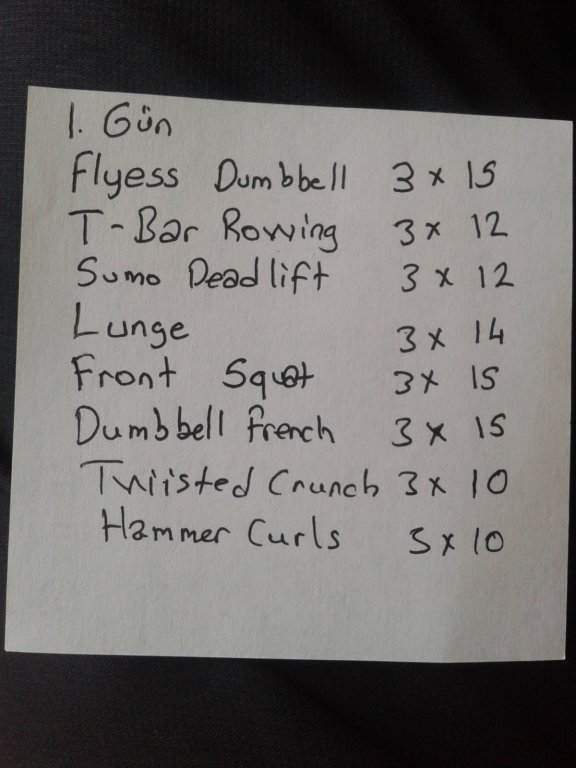 1. Gün
Flyess Dumbbell 3 x 15
T-Bar Rowing 3 x 12
Sumo Deadlift 3 x 12
Lunge 3 x 14
Front Squat 3 x 15
Dumbbell french 3 x 15
Twiisted Crunch 3 x 10
Hammer Curls 5 x 10